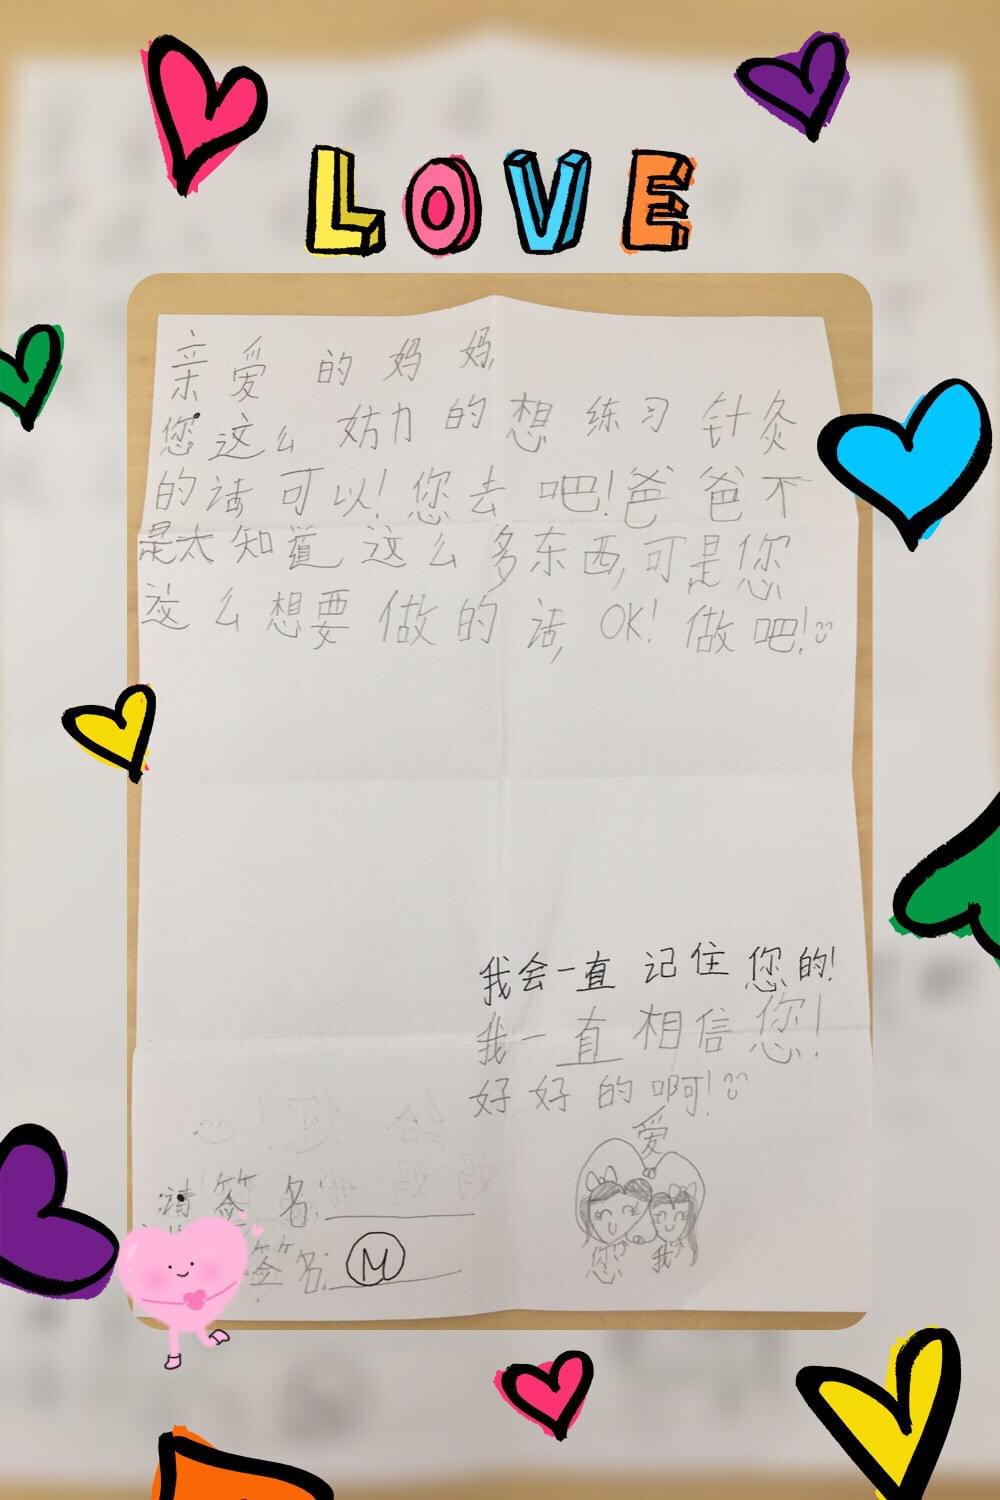 LOVE
亲爱的妈妈,
您这么努力的想练习针灸
的话可以!您去吧!爸爸不
是太知道这么多东西,可是您
这么想要做的话,OK!做吧!
我会一直记住您的!
我一直相信您!
好好的啊!
爱
您 我
请签名:
签名: M